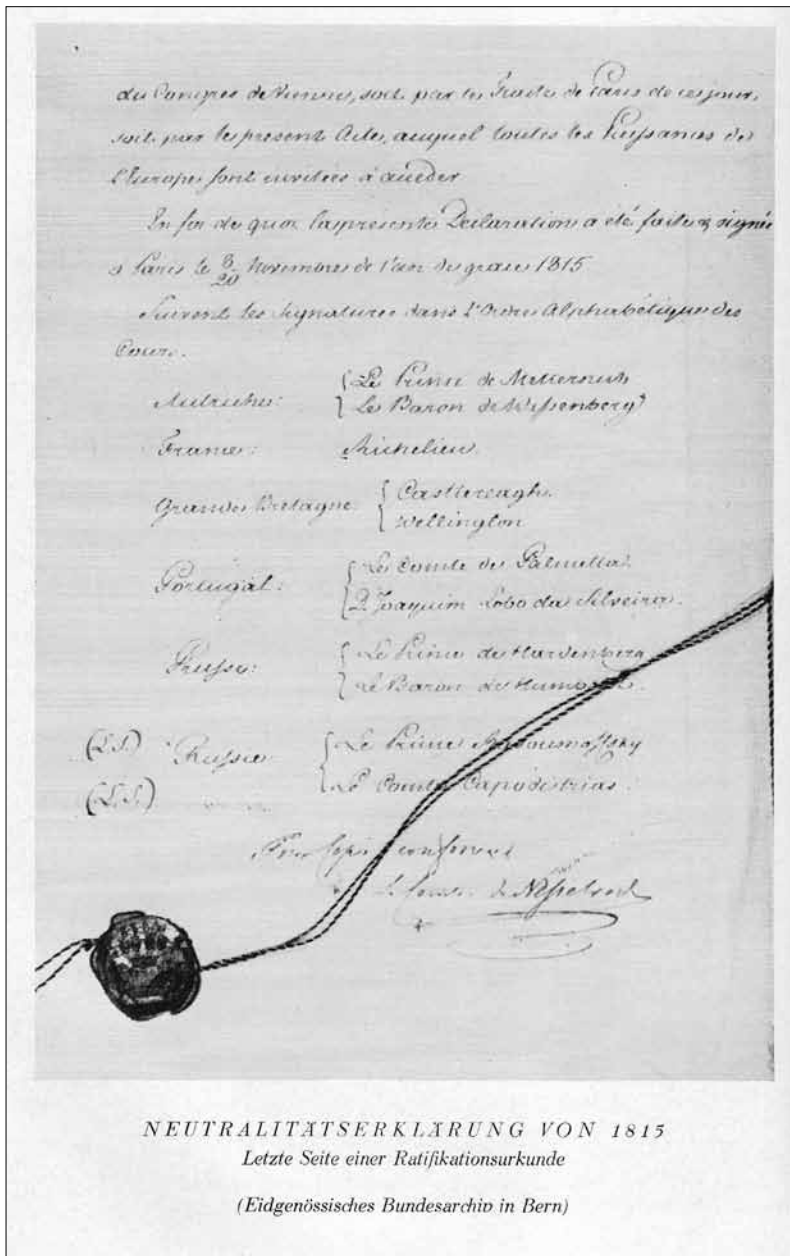 du Congrès de Vienne, soit par le Traité de Paris de ce jour,
soit par le présent Acte, auquel toutes les Puissances de
l'Europe sont invitées à accéder
En foi de quoi la présente Déclaration a été faite & signée
à Paris le 8/20 Novembre de l'an de grace 1815.
Suivent les signatures dans l'Ordre Alphabétique des
Cours.
Autriche: { Le Prince de Metternich
Le Baron de Wessenberg
France: Richelieu.
Grande Bretagne { Castlereagh.
Wellington
Portugal: { Le Comte de Palmella.
D. Joaquim Lobo da Silveira.
Prusse: { Le Prince de Hardenberg
Le Baron de Humboldt.
(L.S.) Russie { Le Prince Rasoumoffsky
(L.S.) Le Comte Capodistrias.
Pour Copie conforme
Le Comte de Nesselrode
NEUTRALITÄTSERKLÄRUNG VON 1815
Letzte Seite einer Ratifikationsurkunde
(Eidgenössisches Bundesarchiv in Bern)